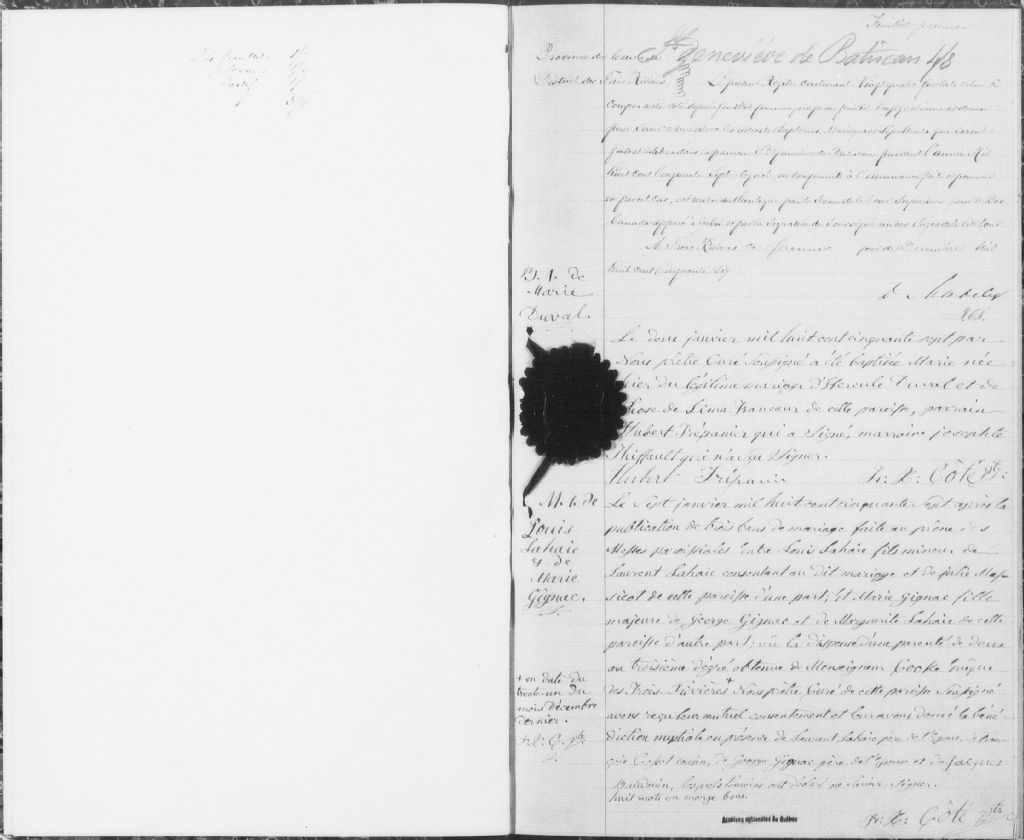 Feuillet premier
Province du Canada Ste Geneviève de Batiscan 1/8
District des Trois Rivières Le présent Régistre contenant Vingt quatre feuillets celui ci
compris a été coté depuis feuillet premier jusqu'au feuillet Vingt quatrième et dernier
pour servir à enrégistrer les actes de Baptêmes, Mariages et Sépultures qui seront
faits et célébrés dans la paroisse Ste Geneviève de Batiscan pendant l'année Mil
huit cent Cinquante Sept; lequel, en conformité à l'ordonnance faite et pourvue
en pareil cas, est rendu authentique par le Sceau de la Cour Supérieure pour le Bas
Canada apposé à celui ci par la Signature du Soussigné un des Juges de la dite Cour
A Trois Rivières ce premier jour de Decembre Mil
huit cent Cinquante Six
D. Mondelet
B. 1. de
Marie
Duval.
Le deux janvier mil huit cent cinquante sept par
Nous prêtre Curé Soussigné a été baptisée Marie née
hier du légitime mariage d'Hercule Duval et de
Rose de Lima Francoeur de cette paroisse, parrain
Hubert Trépanier qui a Signé, marraine josephte
Thiffault qui n'a su Signer.
Hubert Trépanier Fr: X: Côté Ptre
M. 1. de
Louis
Lahaie
& de
Marie
Gignac.
Le Sept janvier mil huit cent cinquante sept après la
publication de trois bans de mariage faite au prône des
Messes paroissiales entre Louis Lahaie fils mineur de
Laurent Lahaie consentant au dit mariage et de julie Mas-
sicot de cette paroisse d'une part; Et Marie Gignac fille
majeure de George Gignac et de Marguerite Lahaie de cette
paroisse d'autre part; vû la dispense d'une parenté de deux
au troisième dégré obtenue de Monseigneur Cooke Evêque
des Trois Rivières + Nous prêtre Curé de cette paroisse Soussigné
avons reçu leur mutuel consentement et leur avons donné la béné-
diction nuptiale en présence de Laurent Lahaie père de l'Epoux, de Fran-
çois cousin, de George Gignac père de l'Epouse et de jacques
Baudouin, lesquels témoins ont déclaré ne Savoir Signer.
huit mots en marge bons.
Fr: X: Côté Ptre
+ en date du
trente-un du
mois Décembre
dernier.
F: X: C: Ptre
Archives nationales du Québec